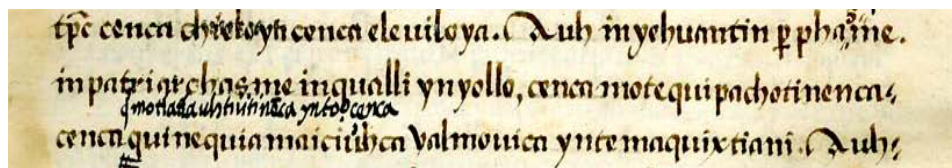 tp̄c cenca chicahoya cenca eleuiloya. Auh in yehuantin pphãsme.
in patriarchasme in qualli ynyollo, cenca motequipachotinenca
cenca quinequia maiciuhca valmouica yntemaquixtiani. Auh